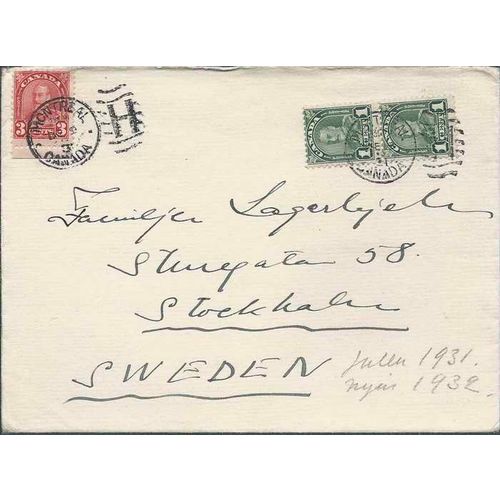 CANADA
3 CENTS 3
MONTREAL
CANADA
H
CANADA
1 CENT 1
CANADA
1 CENT 1
CANADA
Familjen Lagerbjelke
Sturegatan 58.
Stockholm
SWEDEN
Julen 1931.
nyår 1932.